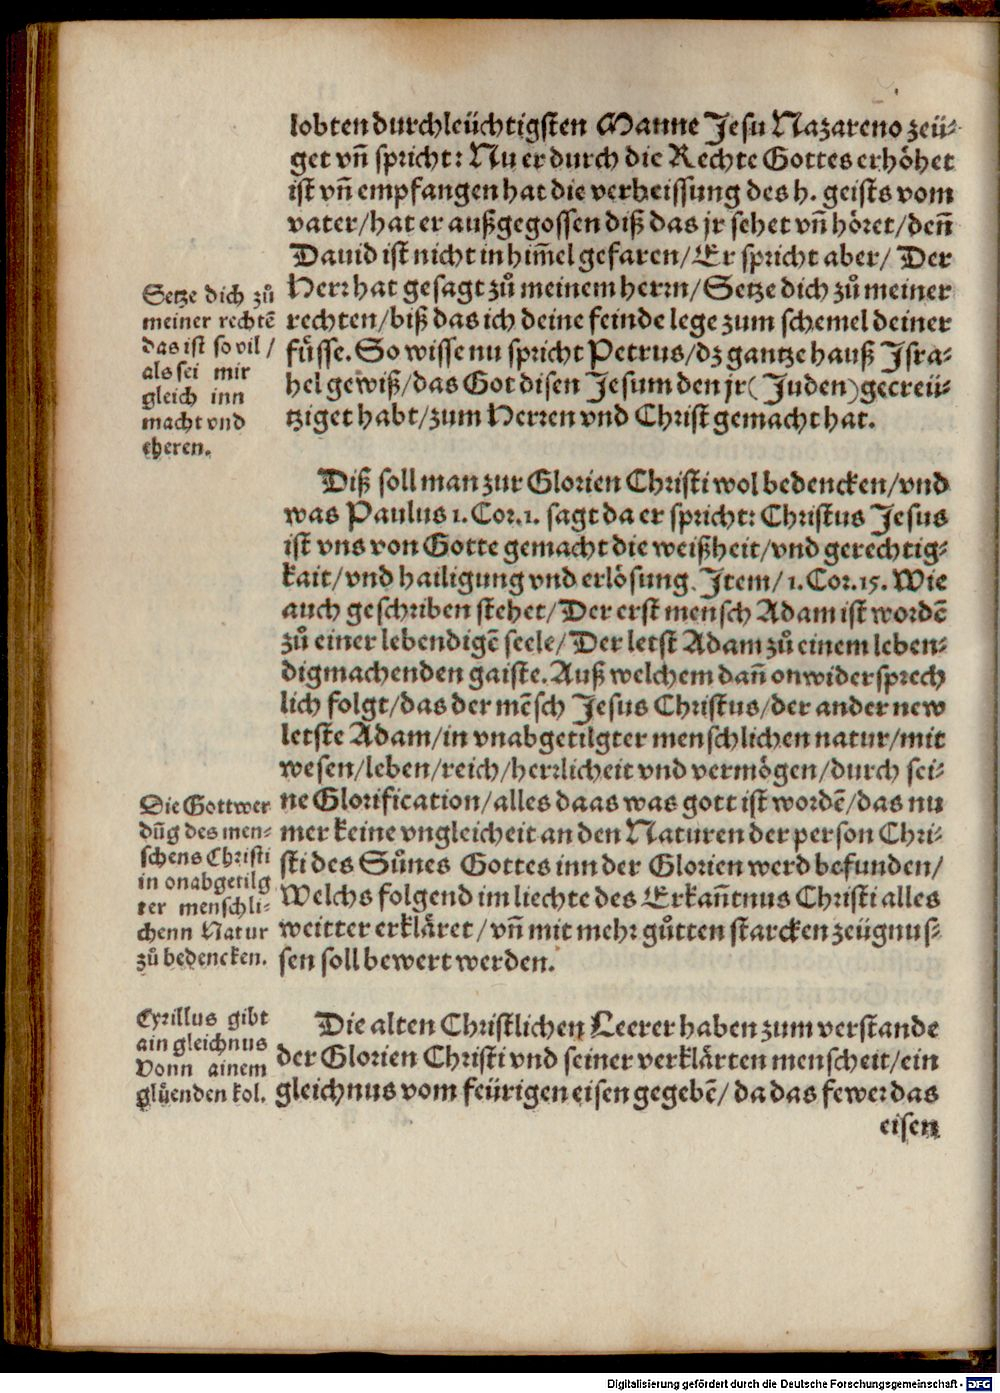 lobten durchleüchtigsten Manne Jesu Nazareno zeü-
get vñ spricht: Nu er durch die Rechte Gottes erhöhet
ist vñ empfangen hat die verheissung des h. geists vom
vater/hat er außgegossen diß das jr sehet vñ höret/deñ
Dauid ist nicht in him̃el gefaren/Er spricht aber/ Der
Herr hat gesagt zů meinem herrn/Setze dich zů meiner
rechten/biß das ich deine feinde lege zum schemel deiner
fůsse. So wisse nu spricht Petrus/dz gantze hauß Jsra-
hel gewiß/das Got disen Jesum den jr (Juden) gecreü-
tziget habt/zum Herren vnd Christ gemacht hat.
Setze dich zů
meiner rechtẽ
das ist so vil /
als sei mir
gleich inn
macht vnd
eheren.
Diß soll man zur Glorien Christi wol bedencken/vnd
was Paulus 1. Cor. 1. sagt da er spricht: Christus Jesus
ist vns von Gotte gemacht die weißheit/vnd gerechtig-
kait/vnd hailigung vnd erlösung. Jtem/ 1. Cor. 15. Wie
auch geschriben stehet/Der erst mensch Adam ist wordẽ
zů einer lebendigẽ seele/ Der letst Adam zů einem leben-
digmachenden gaiste. Auß welchem dañ onwidersprech
lich folgt/das der mẽsch Jesus Christus/der ander new
letste Adam/in vnabgetilgter menschlichen natur/mit
wesen/leben/reich/herrlicheit vnd vermögen/durch sei-
ne Glorification/alles daas was gott ist wordẽ/das nu
mer keine vngleicheit an den Naturen der person Chri-
sti des Sůnes Gottes inn der Glorien werd befunden/
Welchs folgend im liechte des Erkañtnus Christi alles
weitter erkläret / vñ mit mehr gůtten starcken zeügnus-
sen soll bewert werden.
Die Gottwer
dũg des men-
schens Christi
in onabgetilg
ter menschli-
chenn Natur
zů bedencken.
Cyrillus gibt
ain gleichnus
Vonn ainem
glůenden kol.
Die alten Christlichen Leerer haben zum verstande
der Glorien Christi vnd seiner verklärten menscheit/ein
gleichnus vom feürigen eisen gegebẽ/ da das fewer das
eisen
Digitalisierung gefördert durch die Deutsche Forschungsgemeinschaft - DFG